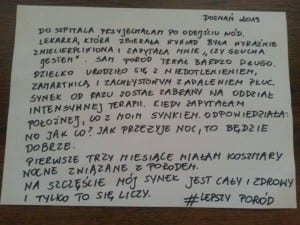 POZNAŃ 2013
DO SZPITALA PRZYJECHAŁAM PO ODEJŚCIU WÓD.
LEKARKA, KTÓRA ZBIERAŁA WYWIAD BYŁA WYRAŹNIE
ZNIECIERPLIWIONA I ZAPYTAŁA MNIE „CZY GŁUCHA
JESTEM". SAM PORÓD TRWAŁ BARDZO DŁUGO.
DZIECKO URODZIŁO SIĘ Z NIEDOTLENIENIEM,
ZAMARTWICĄ I ZACHŁYSTOWYM ZAPALENIEM PŁUC.
SYNEK OD RAZU ZOSTAŁ ZABRANY NA ODDZIAŁ
INTENSYWNEJ TERAPII. KIEDY ZAPYTAŁAM
POŁOŻNEJ, CO Z MOIM SYNKIEM. ODPOWIEDZIAŁA:
NO JAK CO? JAK PRZEŻYJE NOC, TO BĘDZIE
DOBRZE.
PIERWSZE TRZY MIESIĄCE MIAŁAM KOSZMARY
NOCNE ZWIĄZANE Z PORODEM.
NA SZCZĘŚCIE MÓJ SYNEK JEST CAŁY I ZDROWY
I TYLKO TO SIĘ LICZY.
#LEPSZY PORÓD